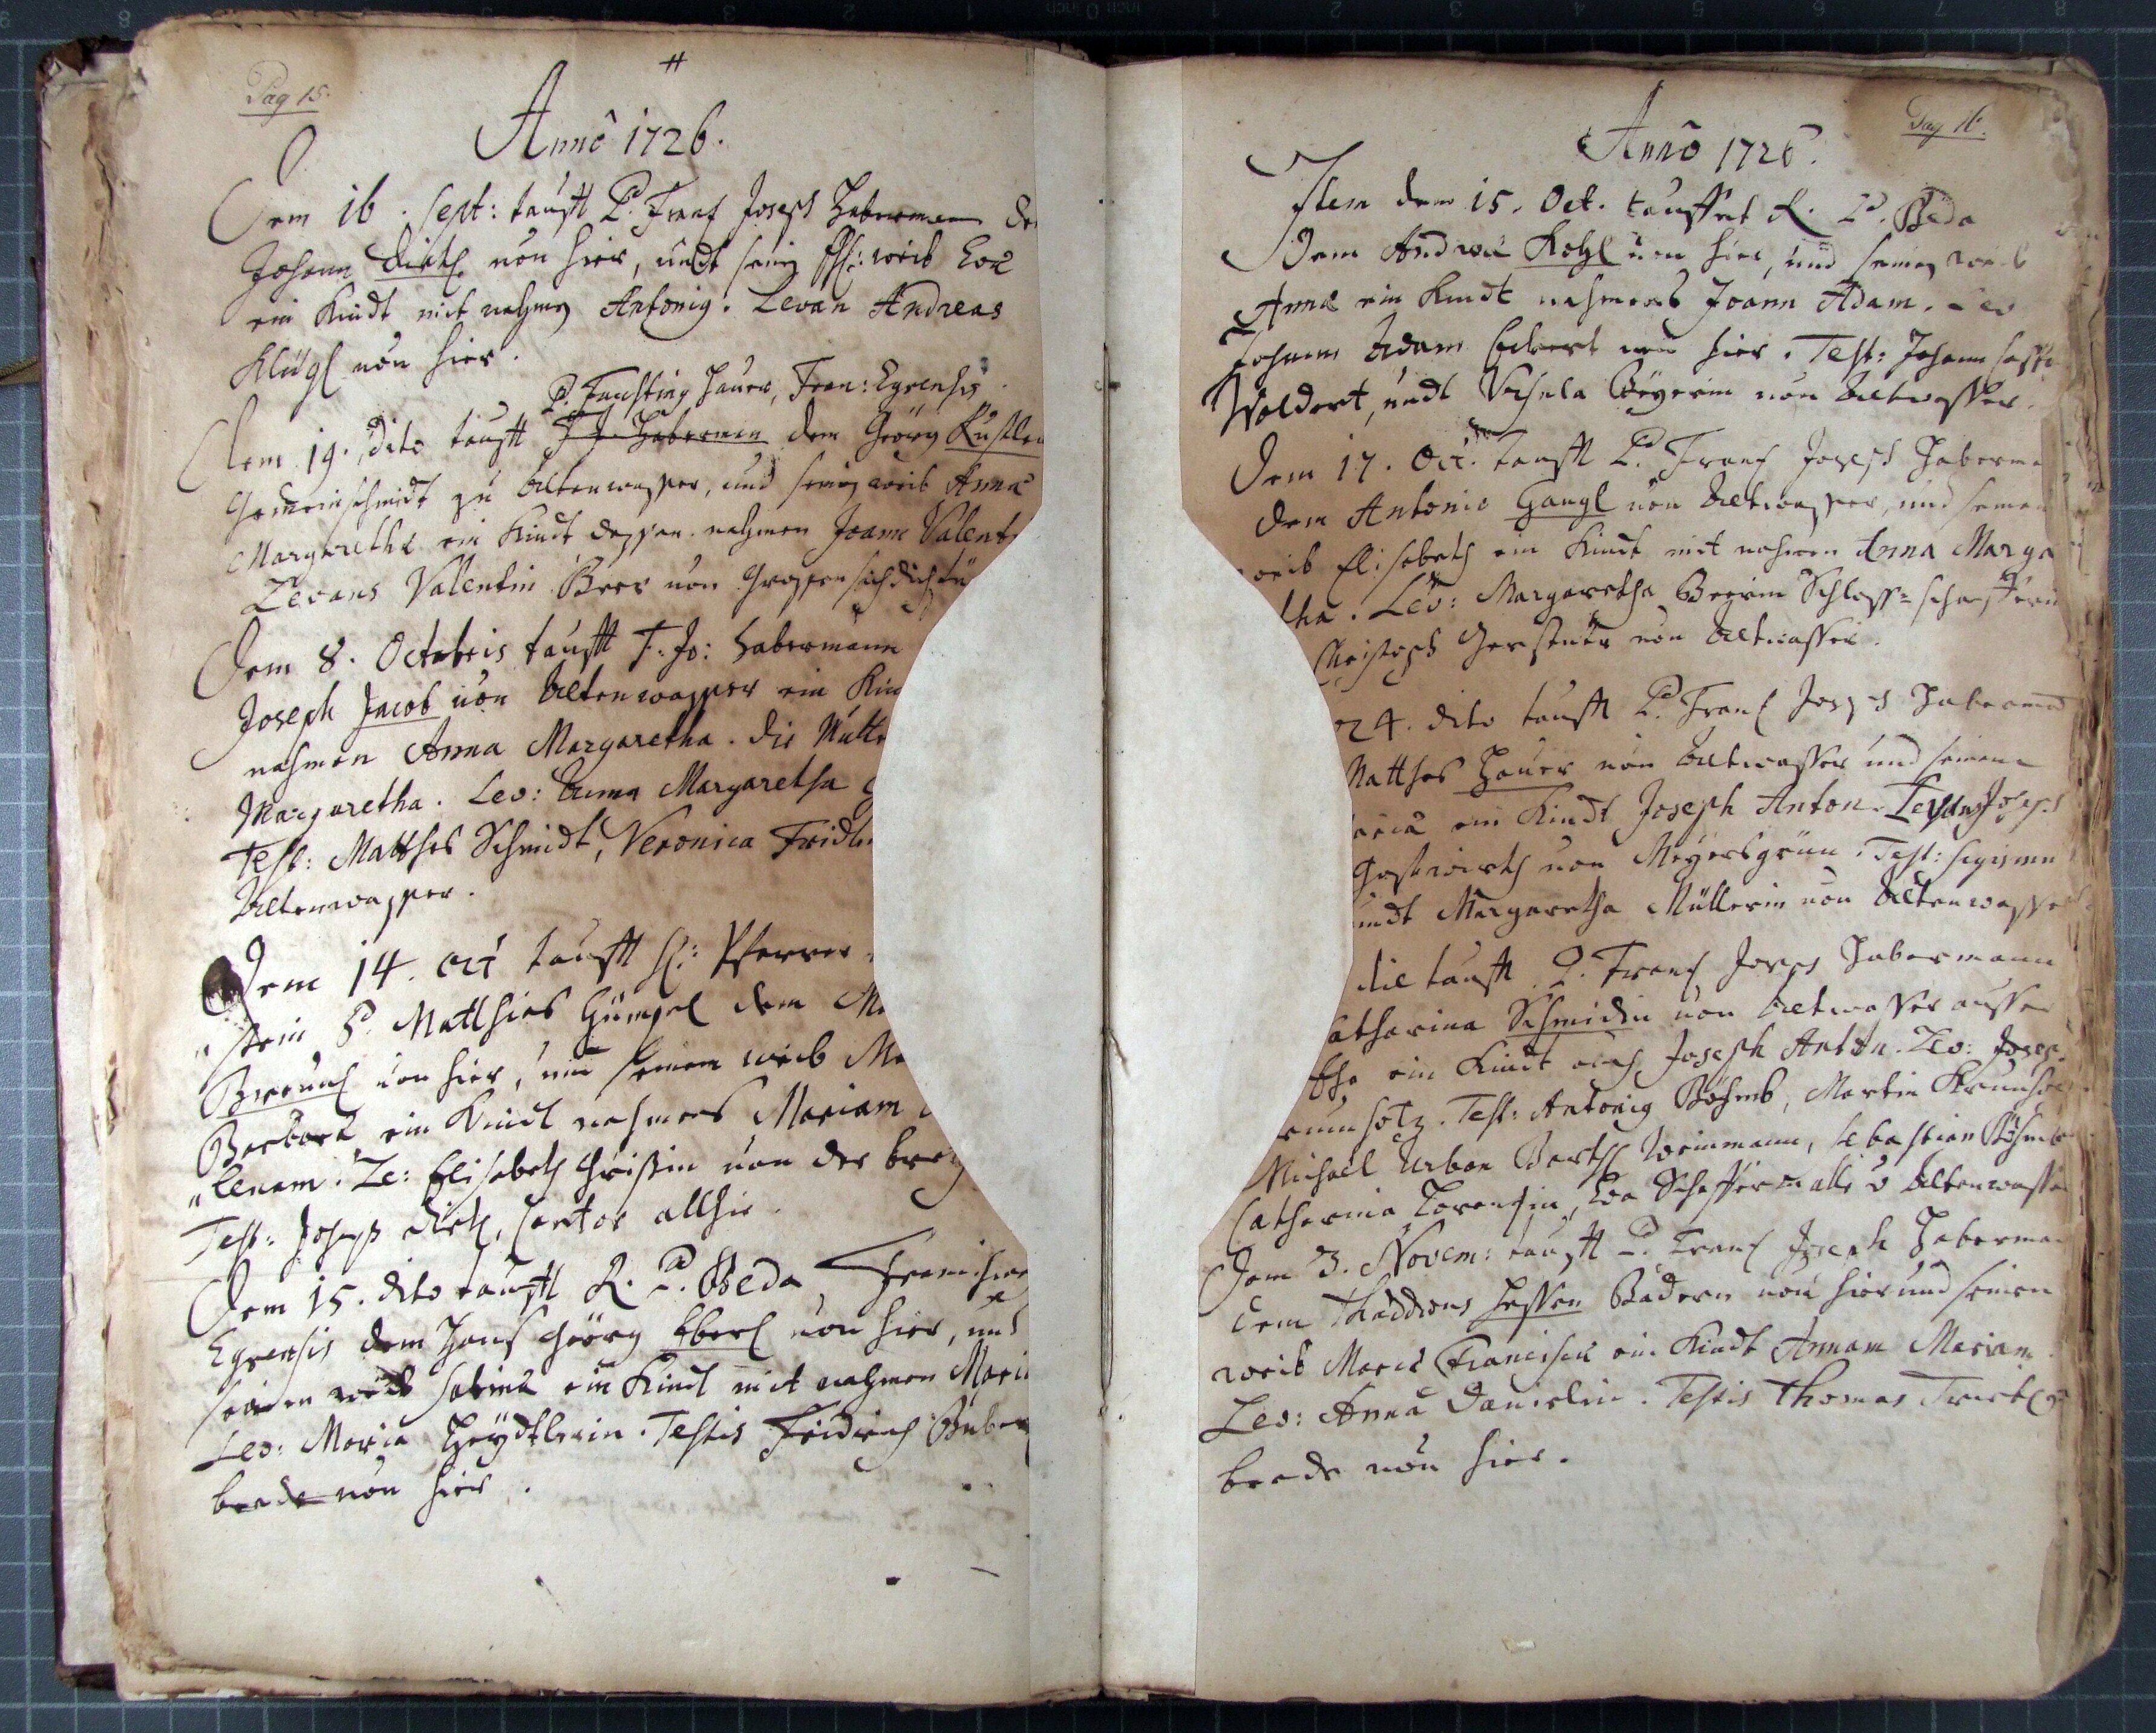 Pag 15.
Anno 1726.
Dem 16. Sept: taufft P. Frantz Joseph Haberman de
Johann Dietl von hier, undt seinen Ehe: weib Eva
ein Kindt mit nahmen Antonig. Levan Andreas
Klügl von hier.
P. Fausting Hauer, Fran: Egrensis.
Dem 19. dito taufft F J Haberman dem Georg
Gemeinschmidt zu Altenwasser, und seinen weib Anna
Margaretha ein Kindt dessen nahmen Joann Valent
Levans Valentin Beer von Grossen
Dem 8. Octobris taufft F: Jo: Habermann
Joseph Jacob von Altenwasser ein Kin
nahmen Anna Margaretha. die Mutte
Margaretha. Lev: Anna Margaretha
Test: Matthes Schmidt, Veronica Fridl
Altenwasser.
Dem 14. Oct taufft H: Pfarrer
stein P. Matthias Gümpel dem Ma
von hier, und seinen weib Ma
Barbara ein Kindt nahmens Mariam
lenam. Le: Elisabeth von der
Test: Joseph Dietl, Cantor allhie.
Dem 15. dito taufft R. P. Beda Franciscan
Egrensis dem Hans Georg Eberl von hier, und
seinen weib Sabina ein Kindt mit nahmen Mari
Lev: Maria Heydtlerin. Testis Fridrich
von hier.
Pag 16.
Anno 1726.
Item dem 15. Oct. tauffet R. P. Beda
Dem Andrea Kohl von hier, und seinen weib
Anna ein Kindt nahmens Joann Adam. Lev
Johann Adam von hier. Test: Johann
Woldert, undt Ursula Beyerin von Altwasser.
Dem 17. Oct. taufft P. Frantz Joseph Haberma
dem Antonio Gangl von Altwasser, und seinen
weib Elisabeth ein Kindt mit nahmen Anna Marga
tha. Lev: Margaretha Beerin Schloss=schafferin
Christoph von Altwasser.
24. dito taufft P. Frantz Joseph Haberma
Matthes Hauer von Altwasser und seinen
aria ein Kindt Joseph Anton. Levans Joseph
Gastwirth von Meyersgrün. Test:
undt Margaretha Müllerin von Altenwasser
die taufft P. Frantz Joseph Habermann
atharina Schmidin von Altwasser ausser
Ehe ein Kindt Joseph Anton. Lev: Joseph
rumholtz. Test: Antonig Böhmb, Martin Krumhol
Michael Urban Weinmann, Sebastian Böhmb
Catharina Lorentzin, Eva Schafferin alle v Altenwasser
Dem 3. Novem: taufft P. Frantz Joseph Haberman
dem Thaddeus Hessen Badern von hier und seinen
weib Maria Francisca ein Kindt Annam Mariam.
Lev: Anna Danielin. Testis Thomas
von hier.